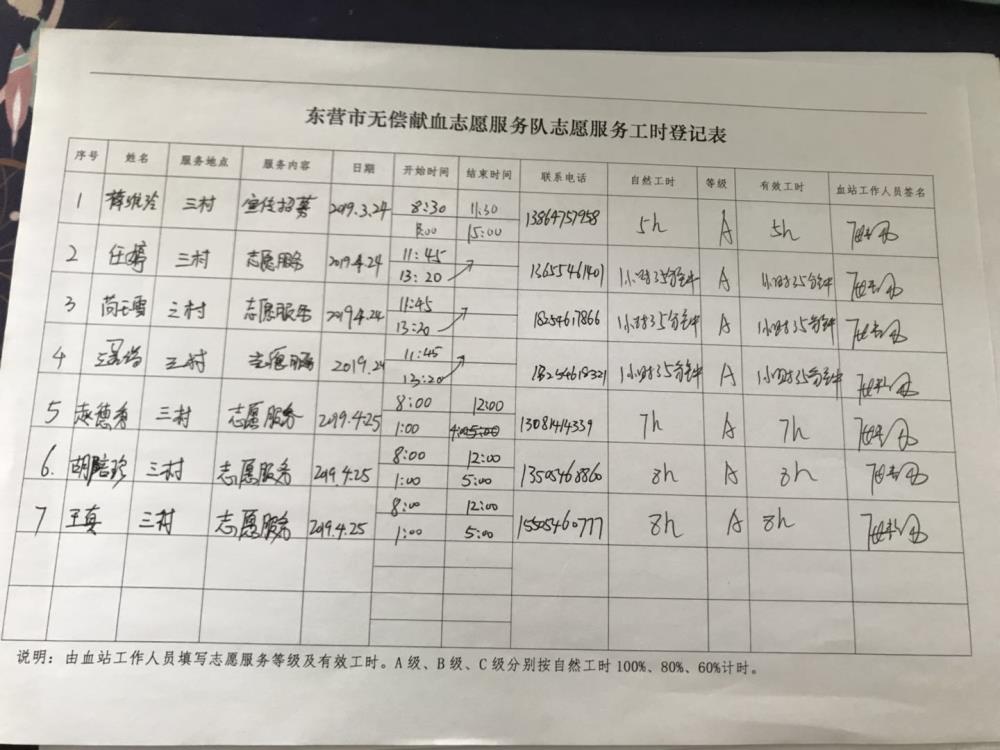 东营市无偿献血志愿服务队志愿服务工时登记表
序号 姓名 服务地点 服务内容 日期 开始时间 结束时间 联系电话 自然工时 等级 有效工时 血站工作人员签名
1 薛维玲 三村 宣传招募 2019.3.24 8:30 11:30 13864757958 5h A 5h
1:00 15:00
2 任婷 三村 志愿服务 2019.4.24 11:45 13655461401 1小时35分钟 A 1小时35分钟
13:20
3 三村 志愿服务 2019.4.24 11:45 18254617866 1小时35分钟 A 1小时35分钟
13:20
4 三村 志愿服务 2019.24 11:45 18254618321 1小时35分钟 A 1小时35分钟
13:20
5 赵德秀 三村 志愿服务 2019.4.25 8:00 12:00 13081414339 7h A 7h
1:00
6. 胡培珍 三村 志愿服务 2019.4.25 8:00 12:00 13505468860 8h A 8h
1:00 5:00
7 王真 三村 志愿服务 2019.4.25 8:00 12:00 15505460777 8h A 8h
1:00 5:00
说明：由血站工作人员填写志愿服务等级及有效工时。A级、B级、C级分别按自然工时100%、80%、60%计时。